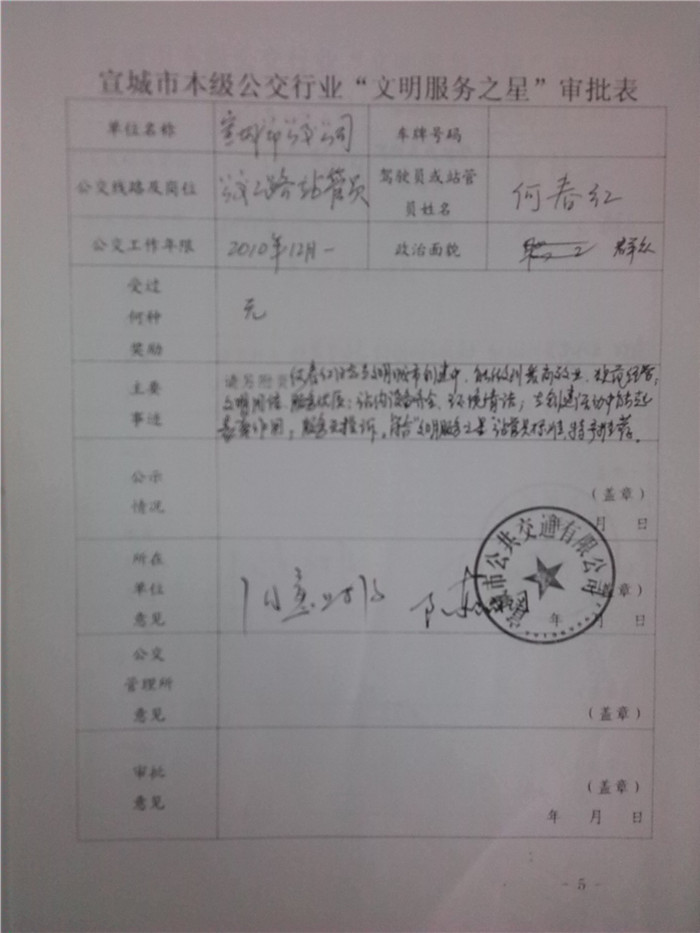 宣城市本级公交行业“文明服务之星”审批表
单位名称 宣城市公交公司 车牌号码
公交线路及岗位 公交 路站管员 驾驶员或站管员姓名 何春红
公交工作年限 2010年12月— 政治面貌 群众
受过何种奖励 无
主要事迹 请另附页 何春红同志在文明城市创建中，能做到爱岗敬业、
文明用语、服务优质；站内设备齐全、环境清洁；在创建活动中
作用，服务无投诉。符合“文明服务之星”站管员标准，特予推荐。
公示情况 （盖章）
月 日
所在单位意见 同意 章）
年 月 日
宣城市公共交通有限公司
公交管理所意见 （盖章）
审批意见 （盖章）
年 月 日
- 5 -